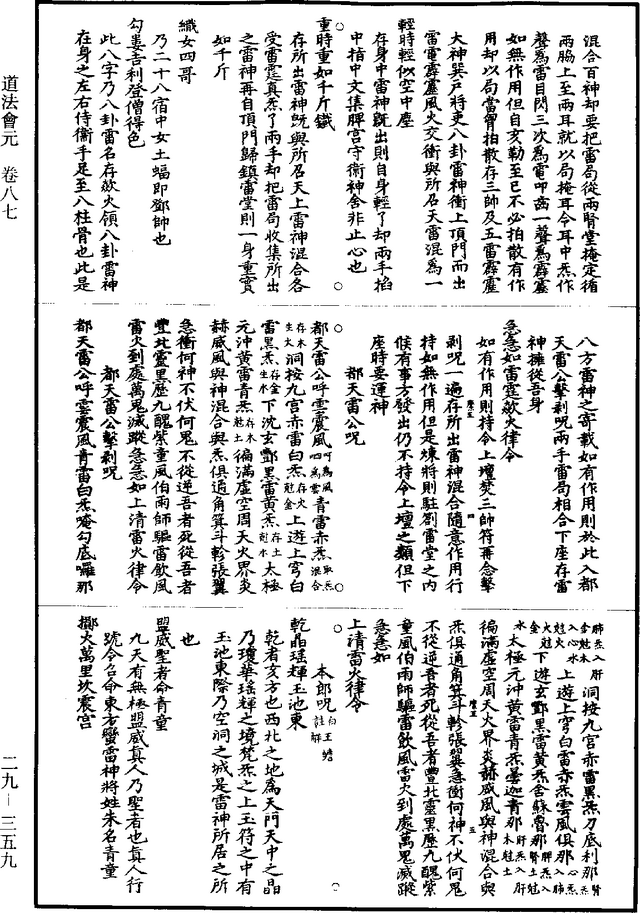 道法會元 卷八七
混合百神却要把雷局從兩腎堂掩定循
兩脇上至兩耳就以局掩耳令耳中炁作
聲為雷目閃三次為電叩齒一聲為霹靂
如無作用但自亥勒至巳不必拍散有作
用却以局當胷拍散存三帥及五雷霹靂
大神巽戶將吏八卦雷神衝上頂門而出
雷電霹靂風火交衝與所召天雷混為一
輕時輕似空中塵
存身中雷神既出則自身輕了却兩手掐
中指中文集脾宮守衛神舍非止心也
重時重如千斤鐵
存所出雷神既與所召天上雷神混合各
受雷霆真炁了兩手却把雷局收集所出
之雷神再自頂門歸鎮雷堂則一身重實
如千斤
織女四哥
乃二十八宿中女土蝠即鄧帥也
勾婁吉利登僧得色
此八字乃八卦雷名存欻火領八卦雷神
在身之左右侍衛手足至八柱骨也此是
八方雷神之寄載如有作用則於此入都
天雷公擊剥呪兩手雷局相合下座存雷
神擁從吾身
急急如雷霆欻火律令
如有作用則持令上壇焚三帥符再念擊
剥呪一遍存所出雷神混合隨意作用行
持如無作用但是煉將則駐劄雷堂之內
候有事方發出仍不持令上壇之類但下
座時要運神
都天雷公呪
都天雷公呼雲震風呵為風呬為雲青雷赤炁取炁混合
存木生火洞按九宮赤雷白炁存火尅金上遊上穹白
雷黑炁存金生水下沈玄酆黑雷黃炁存土尅水太極
元沖黃雷青炁存木尅土徧滿虛空周天火界炎
赫威風與神混合與炁俱通角箕斗軫張翼
急衝何神不伏何鬼不從逆吾者死從吾者
豐北靈黑歷九醜紫童風伯雨師驅雷飲風
雷火到處萬鬼滅蹤急急如上清雷火律令
都天雷公擊剥呪
都天雷公呼雲震風青雷白炁唵勾底囉那
肺炁入肝金尅木洞按九宮赤雷黑炁刀底利那腎炁
入心水尅火上遊上穹白雷赤炁雲風俱那心炁入肺
火尅金下遊玄酆黑雷黃炁舍蘇魯那脾炁入腎土尅
水太極元沖黃雷青炁曇迦青那肝炁入脾木尅土
徧滿虛空周天火界炎赫威風與神混合與
炁俱通角箕斗軫張翼急衝何神不伏何鬼
不從逆吾者死從吾者豐北靈黑歷九醜紫
童風伯雨師驅雷飲風雷火到處萬鬼滅蹤
急急如
上清雷火律令
本郎呪白玉蟾註解
乾晶瑤輝玉池東
乾者亥方也西北之地為天門天中之晶
乃瓊華瑤輝之境梵炁之上玉符之中有
玉池東際乃空洞之城是雷神所居之所
也
盟威聖者命青童
九天有無極盟威真人乃聖者也真人行
號令召命東方蠻雷神將姓朱名青童
擲火萬里坎震宮
二九—三五九